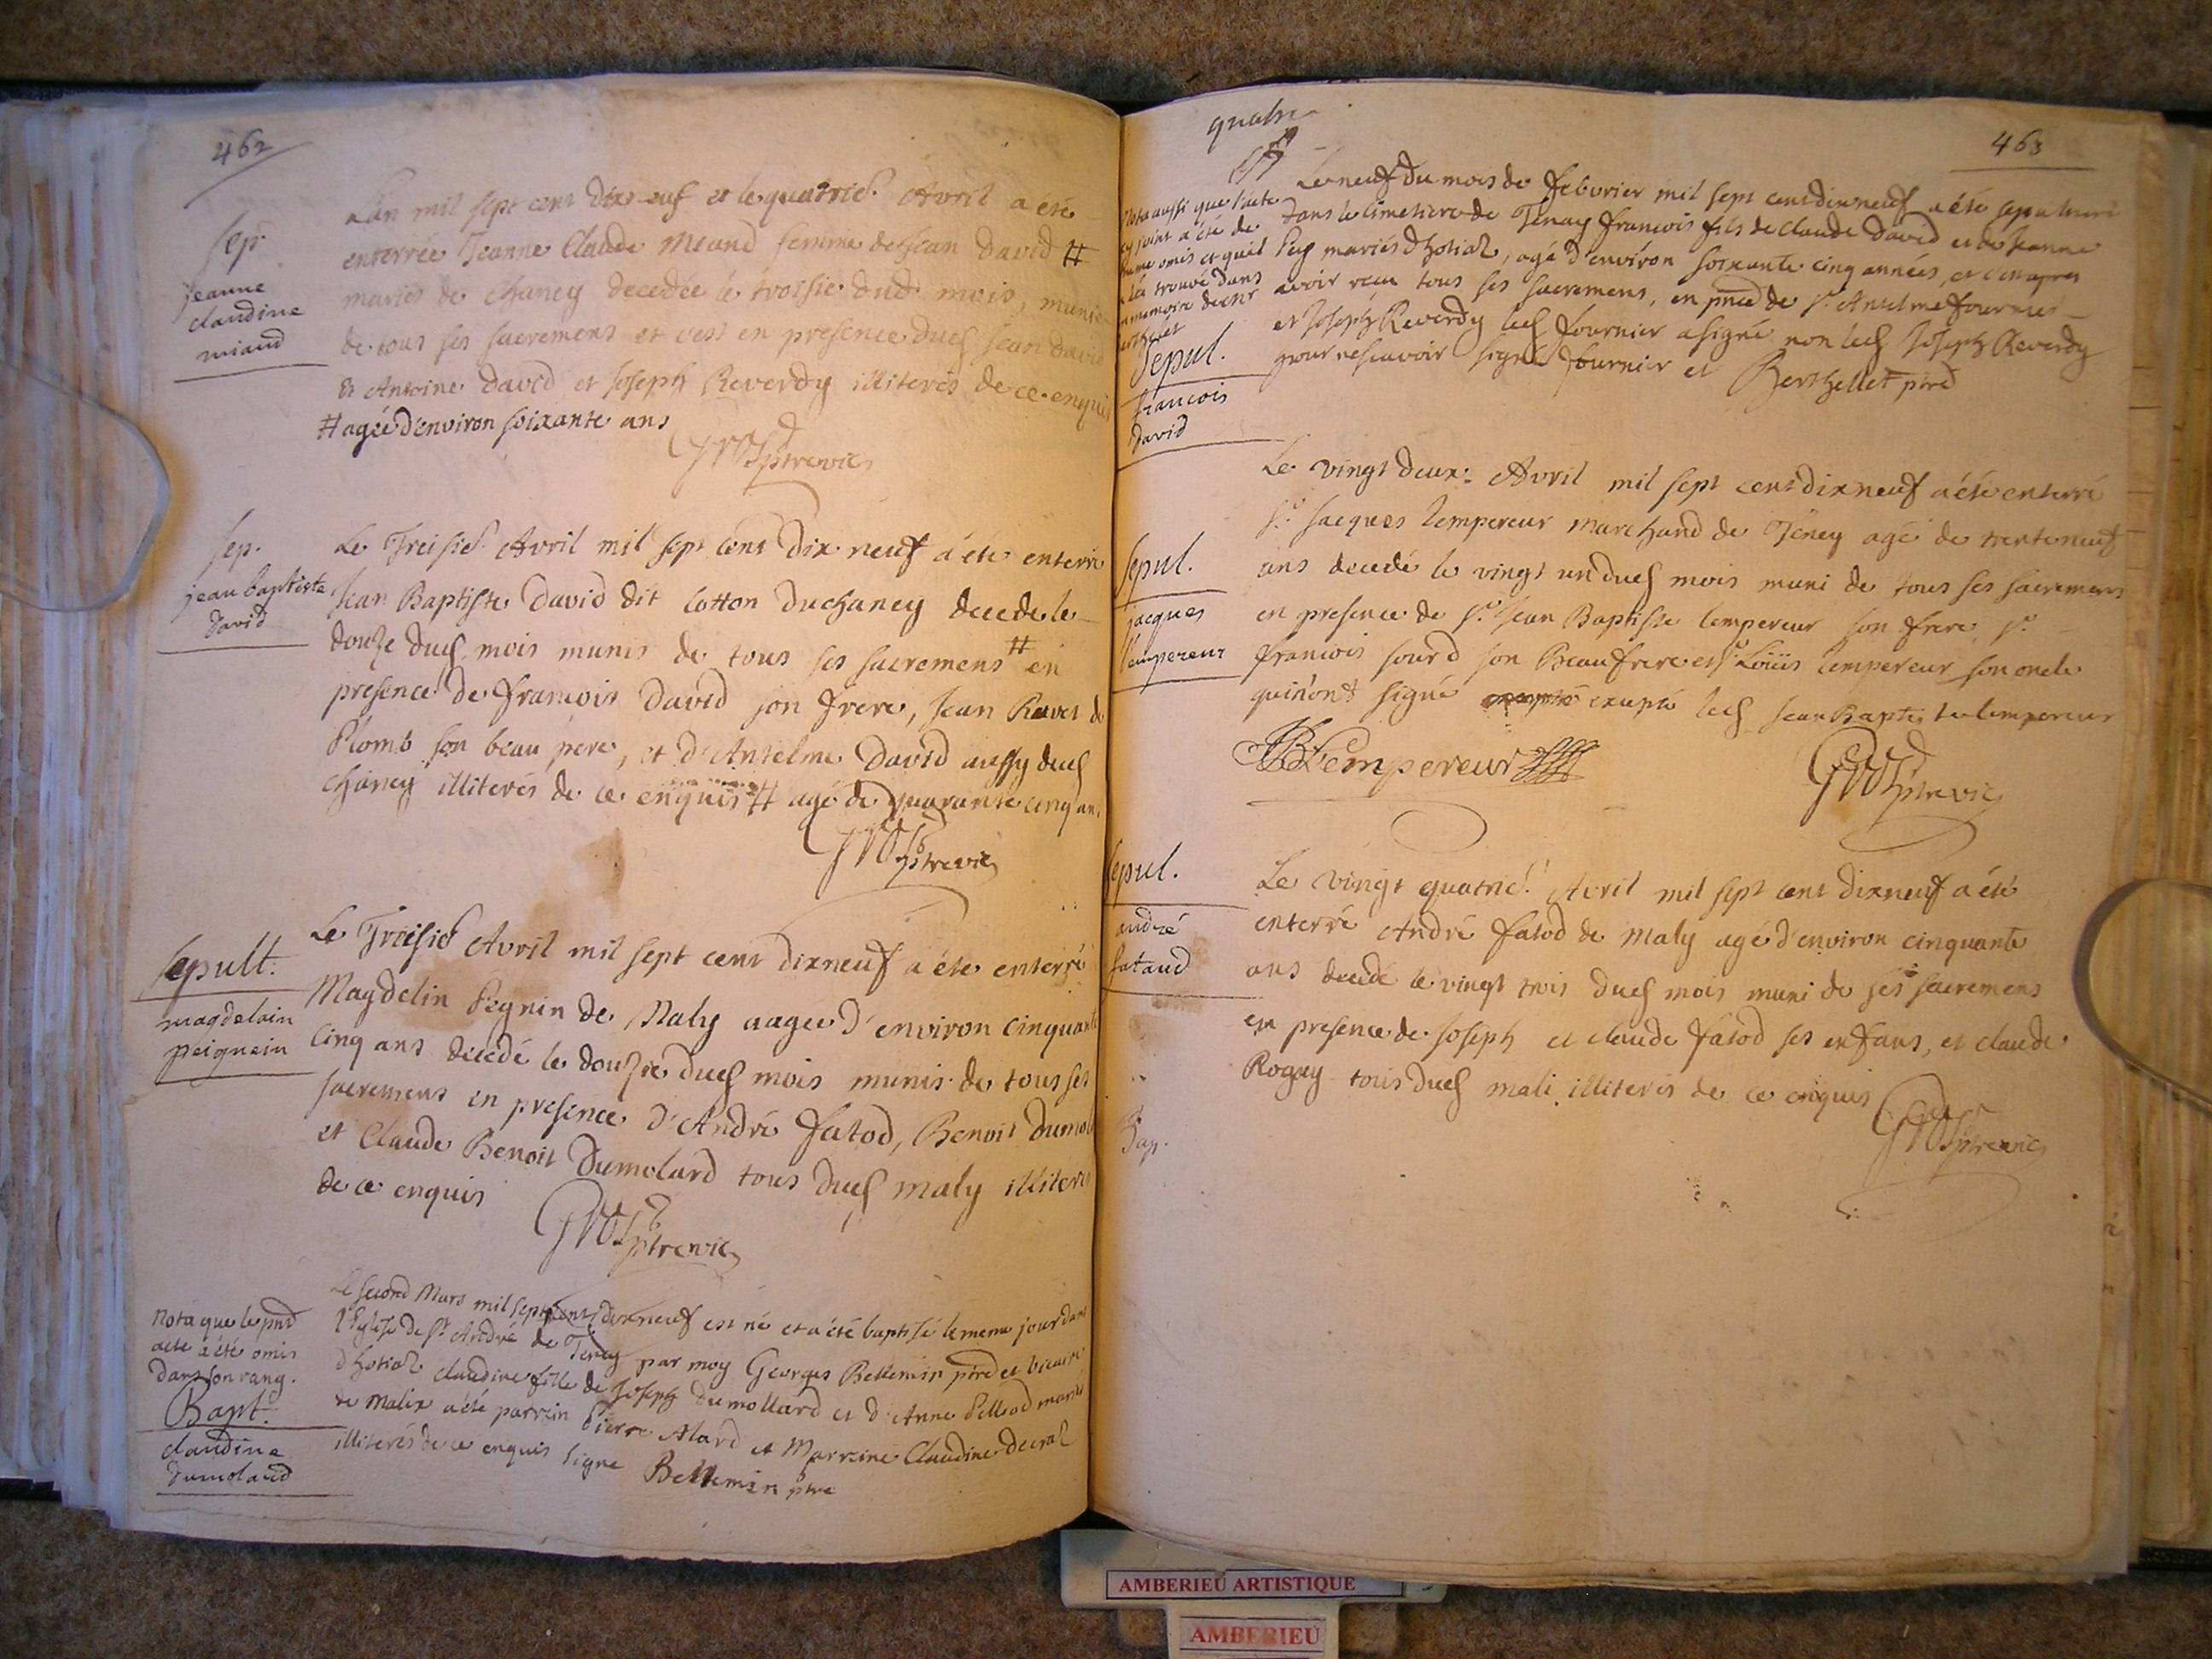 462
Sep.
jeanne
claudine
miaud
L'an mil sept cent dix neuf et le quatrie. Avril a eté
enterrée Jeanne Claude Meaud femme de Jean David #
mariés de Chaney decedée le troisie dud mois, munie
de tous ses sacremens et c'est en presence dud Jean David
et Antoine David et Joseph Reverdy illiterés de ce enquis
# agée d'environ soixante ans
Gros ptre vic
Sep.
jean baptiste
David
Le Treisie. Avril mil sept cent dix neuf a été enterré
Jean Baptiste David dit Cotton du chaney decede le
douze dud mois munis de tous ses sacremens # en
presence de francois David son frere, Jean Ravet de
Plomb son beau pere, et d'Antelme David aussy dud
Chaney illiterés de ce enquis # agé de quarante cinq ans
Gros ptre vic
Sepult.
magdelain
peignein
Le Treisie Avril mil sept cent dixneuf a été enterré
Magdelin Pegnin de Maly aagee d'environ cinquante
cinq ans décédé le douzie dud mois munis de tous ses
sacremens en presence d'André fatod, Benoit dumol
et Claude Benoit Dumolard tous dud maly illiteres
de ce enquis
Gros ptre vic
Nota que le pnt
acte a été omis
dans son rang.
Bapt.
claudine
dumolard
Le second Mars mil sept cent dixneuf est né et a été baptisé le meme jour dans
l'Eglise de St André de Teney par moy Georges Bellemin ptre et vicaire
d'hotial claudine fille de Joseph Dumollard et d'Anne Pellod mariés
de Malix a été parrein Pierre Alard et Marreine Claudine Decral
illiterés de ce enquis signe Bellemin ptre
quatre
463
Nota aussi que l'acte
cy joint a été de
meme omis et qu'il
a été trouvé dans
un memoire de mr
Berthelet
Sepul.
francois
david
Le neuf du mois de febvrier mil sept cent dix neuf a été sepulturé
dans le cimetiere de Tenay francois fils de claude David et de Jeanne
Pey mariés d'hotial, agé d'environ soixante cinq années, et c'en apres
avoir recu tous ses sacremens, en pnce de sr. Antelme fournier
et Joseph Reverdy led fournier a signé non led Joseph Reverdy
pour ne scavoir signé fournier et Berthellet ptre
Sepul.
jacques
l'empereur
Le vingt deux: Avril mil sept cent dix neuf a été enterré
sr. Jacques Lempereur marchand de Teney agé de trente neuf
ans decedé le vingt un dud mois muni de tous ses sacremens
en presence de sr. Jean Baptiste lempereur son frere, sr.
francois sourd son Beaufrere et sr. Loüis lempereur son oncle
qui n'ont signé excepté led Jean Baptiste lempereur
JB Lempereur
Gros ptre vic
Sepul.
andré
fataud
Le vingt quatrie. Avril mil sept cent dixneuf a été
enterré André fatod de Maly agé d'environ cinquante
ans decedé le vingt trois dud mois muni de ses sacremens
en presence de Joseph et claude fatod ses enfans, et claude
Rogay tous dud mali illiterés de ce enquis
Gros ptre vic
Bap.
AMBERIEU ARTISTIQUE
AMBERIEU